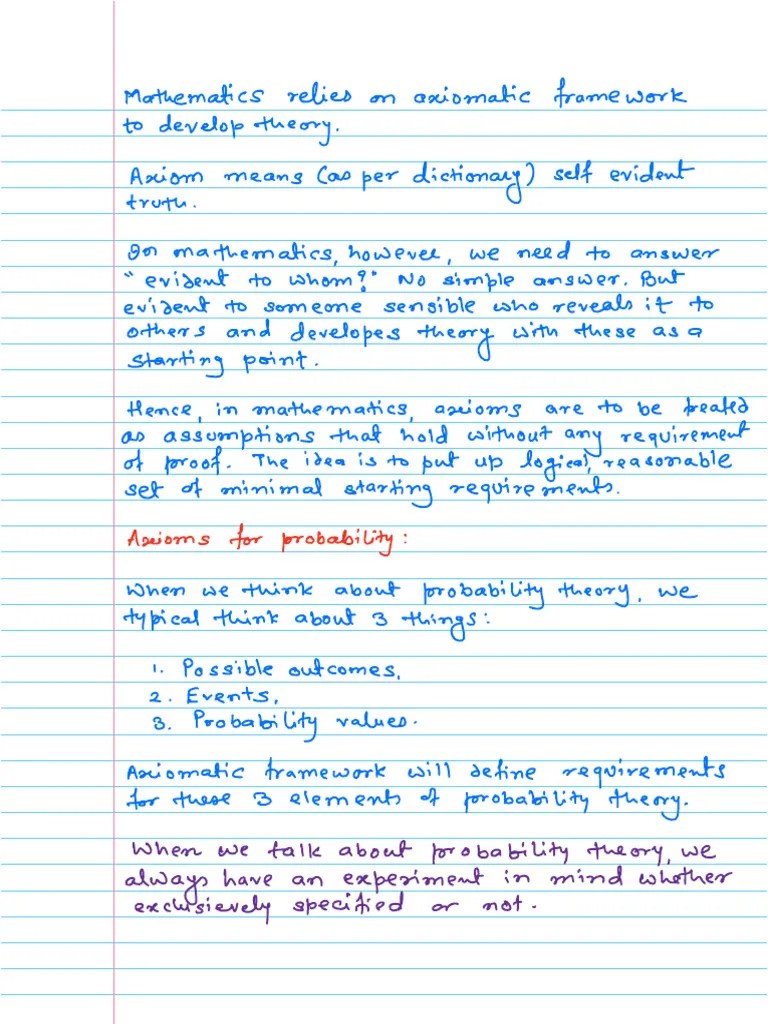 Mathematics relies on axiomatic framework
to develop theory.
Axiom means (as per dictionary) self evident
truth.
In mathematics, however, we need to answer
"evident to whom?" No simple answer. But
evident to someone sensible who reveals it to
others and developes theory with these as a
starting point.
Hence, in mathematics, axioms are to be treated
as assumptions that hold without any requirement
of proof. The idea is to put up logical, reasonable
set of minimal starting requirements.
Axioms for probability:
When we think about probability theory, we
typical think about 3 things:
1. Possible outcomes,
2. Events,
3. Probability values.
Axiomatic framework will define requirements
for these 3 elements of probability theory.
When we talk about probability theory, we
always have an experiment in mind whether
exclusievely specified or not.